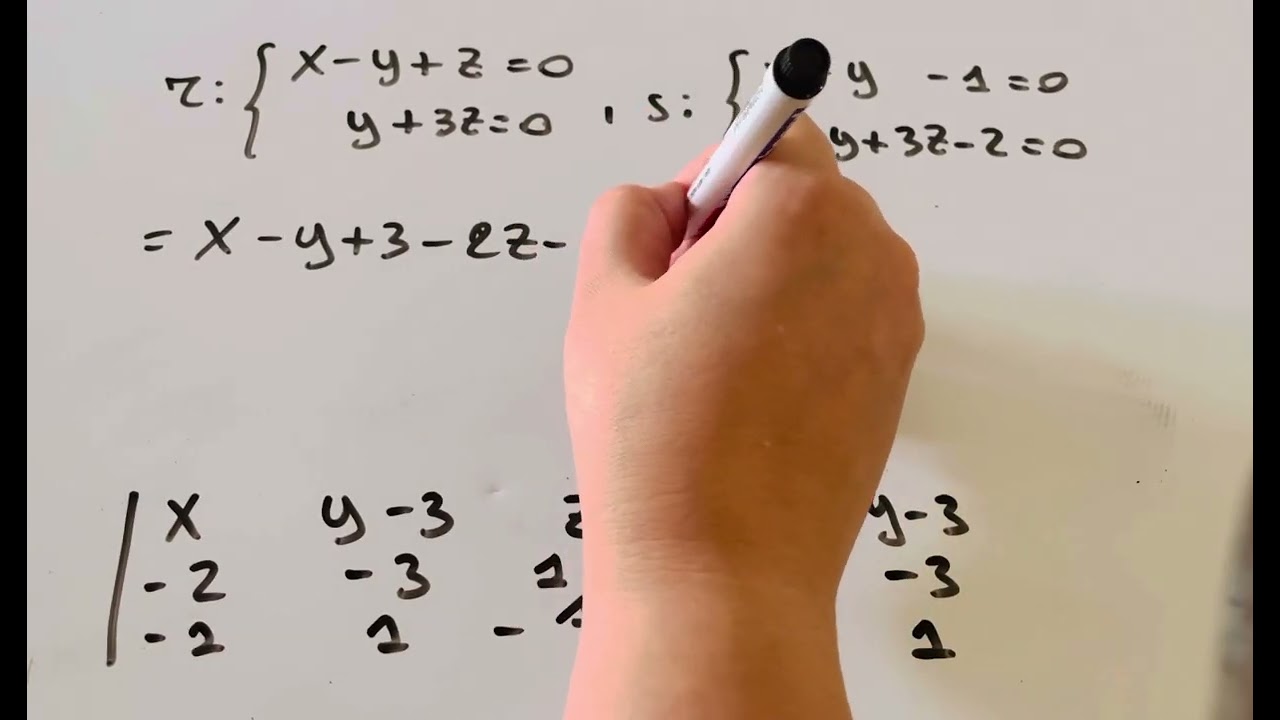 r: { x - y + z = 0
y + 3z = 0 , s: { y - 1 = 0
y + 3z - 2 = 0
= x - y + 3 - 2z -
| x y - 3 z y - 3
- 2 - 3 1 - 3
- 1 1 - 1 1